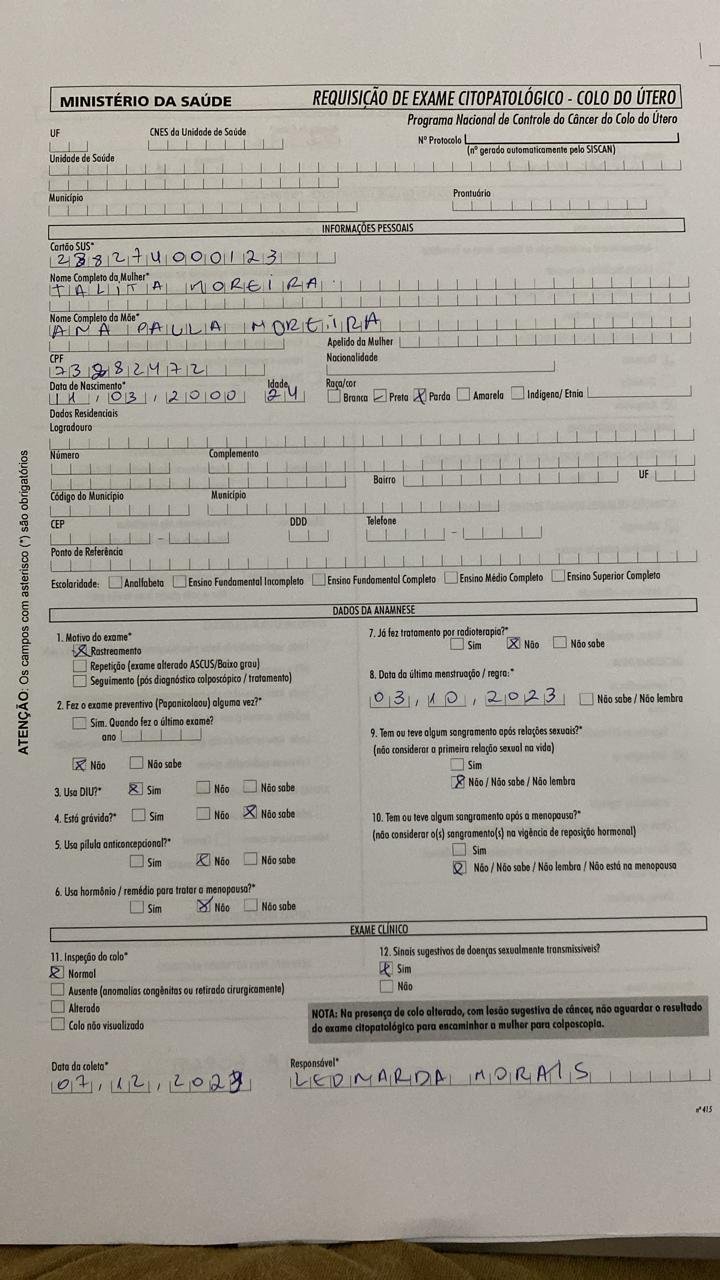 MINISTÉRIO DA SAÚDE REQUISIÇÃO DE EXAME CITOPATOLÓGICO - COLO DO ÚTERO
Programa Nacional de Controle do Câncer do Colo do Útero
UF CNES da Unidade de Saúde Nº Protocolo
(nº gerado automaticamente pelo SISCAN)
Unidade de Saúde
Município Prontuário
INFORMAÇÕES PESSOAIS
Cartão SUS*
288274000123
Nome Completo da Mulher*
TALITA MOREIRA
Nome Completo da Mãe*
ANA PAULA MOREIRA
Apelido da Mulher
CPF Nacionalidade
73882472
Data de Nascimento* Idade Raça/cor
11, 03, 2000 24 Branca Preta X Parda Amarela Indígena/ Etnia
Dados Residenciais
Logradouro
Número Complemento
Bairro UF
Código do Município Município
CEP DDD Telefone
Ponto de Referência
Escolaridade: Analfabeta Ensino Fundamental Incompleto Ensino Fundamental Completo Ensino Médio Completo Ensino Superior Completo
ATENÇÃO: Os campos com asterisco (*) são obrigatórios
DADOS DA ANAMNESE
1. Motivo do exame*
X Rastreamento
Repetição (exame alterado ASCUS/Baixo grau)
Seguimento (pós diagnóstico colposcópico / tratamento)
2. Fez o exame preventivo (Papanicolaou) alguma vez?*
Sim. Quando fez o último exame?
ano
X Não Não sabe
3. Usa DIU?* X Sim Não Não sabe
4. Está grávida?* Sim Não X Não sabe
5. Usa pílula anticoncepcional?*
Sim X Não Não sabe
6. Usa hormônio / remédio para tratar a menopausa?*
Sim X Não Não sabe
7. Já fez tratamento por radioterapia?*
Sim X Não Não sabe
8. Data da última menstruação / regra:*
03, 10, 2023 Não sabe / Não lembra
9. Tem ou teve algum sangramento após relações sexuais?*
(não considerar a primeira relação sexual na vida)
Sim
X Não / Não sabe / Não lembra
10. Tem ou teve algum sangramento após a menopausa?*
(não considerar o(s) sangramento(s) na vigência de reposição hormonal)
Sim
X Não / Não sabe / Não lembra / Não está na menopausa
EXAME CLÍNICO
11. Inspeção do colo*
X Normal
Ausente (anomalias congênitas ou retirado cirurgicamente)
Alterado
Colo não visualizado
12. Sinais sugestivos de doenças sexualmente transmissíveis?
X Sim
Não
NOTA: Na presença de colo alterado, com lesão sugestiva de câncer, não aguardar o resultado
do exame citopatológico para encaminhar a mulher para colposcopia.
Data da coleta* Responsável*
07, 12, LEONARDA MORAIS
nº 415